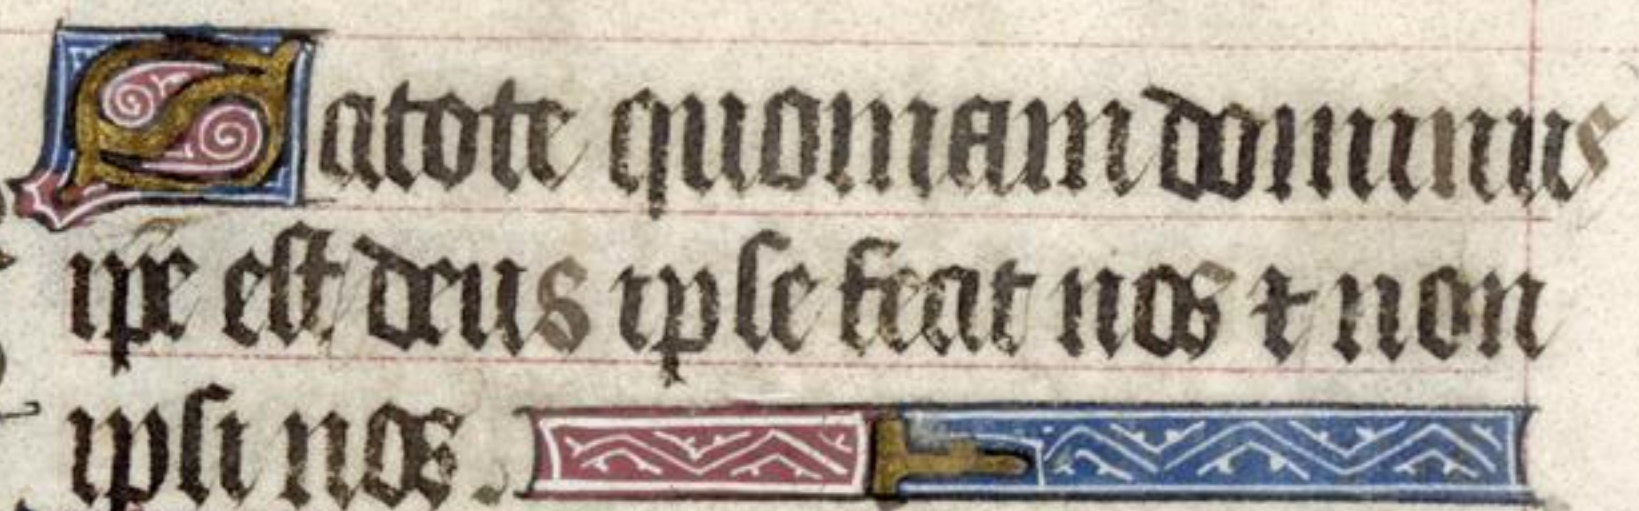 Scitote quoniam dominus
ip̄e est deus ipse fecit nos ⁊ non
ipsi nos.